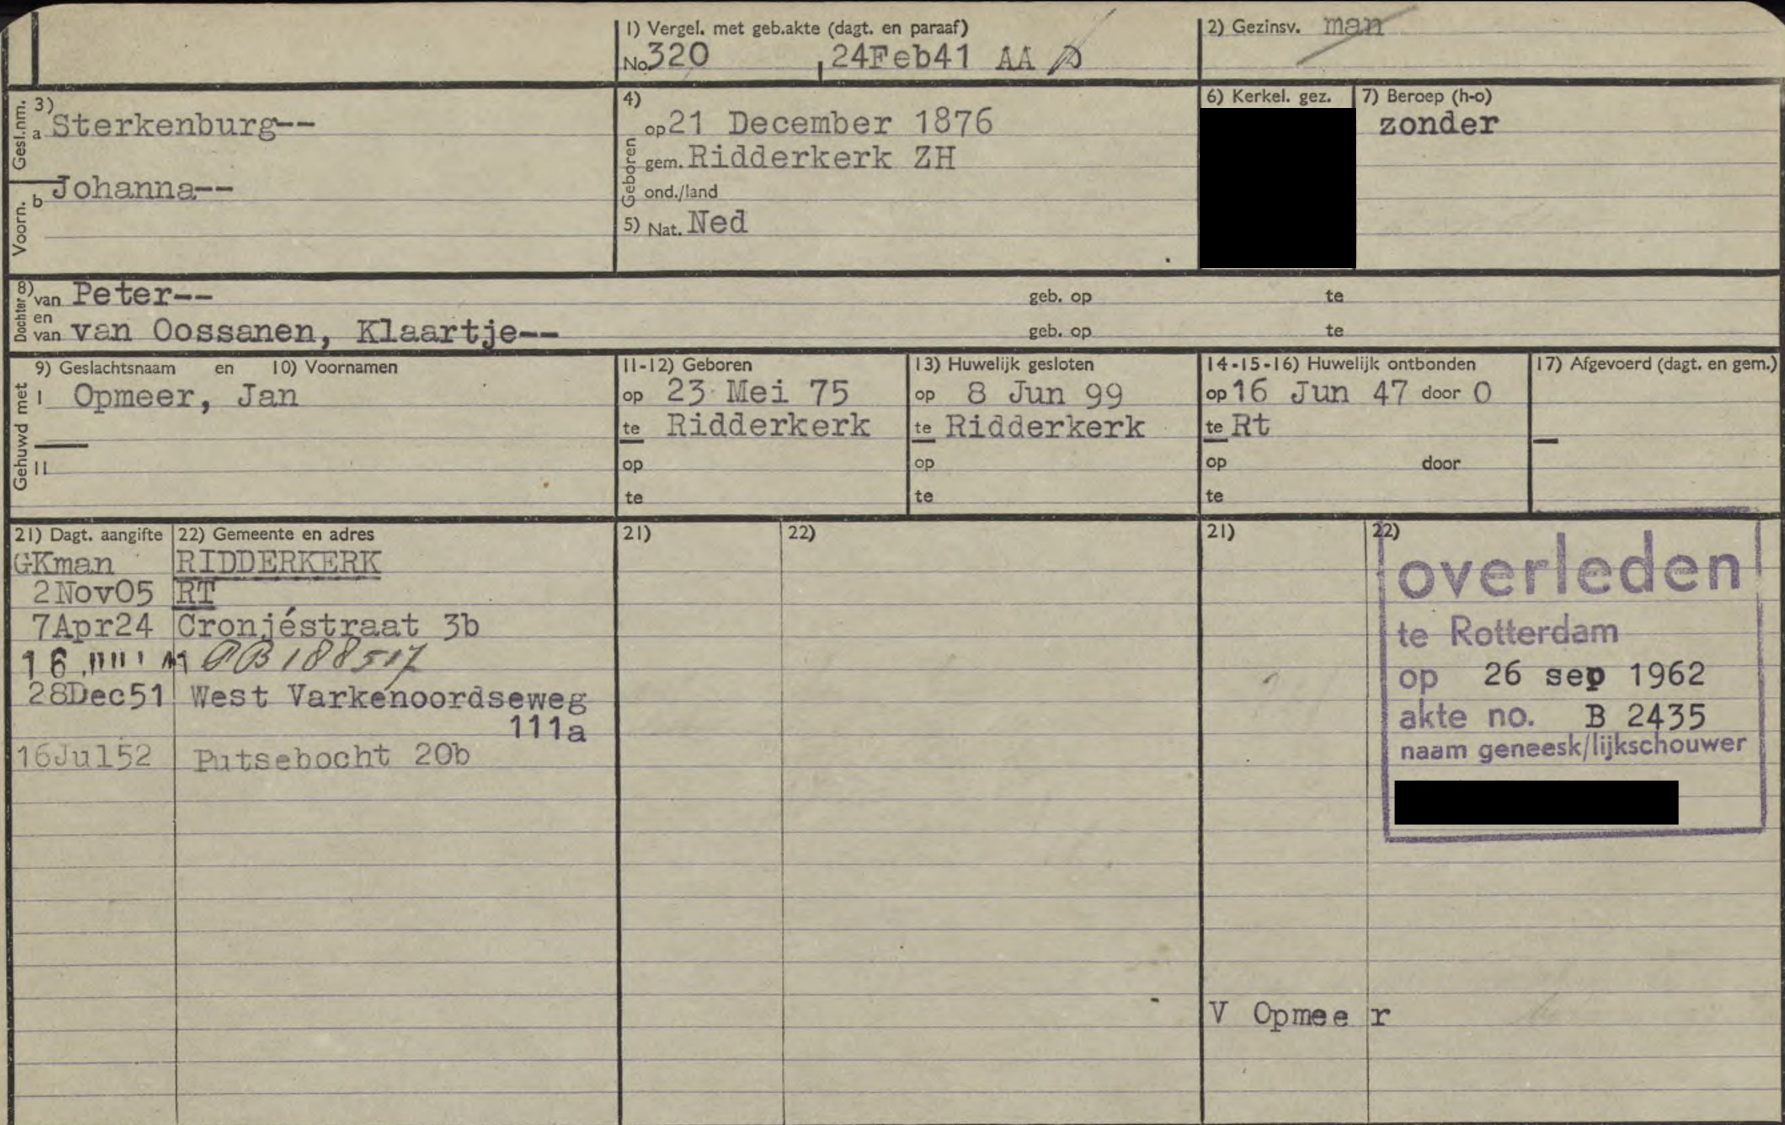 1) Vergel. met geb.akte (dagt. en paraaf)
No 320 , 24Feb41 AA
2) Gezinsv. man
Gesl.nm. 3) a Sterkenburg--
Voorn. b Johanna--
4) Geboren op 21 December 1876
gem. Ridderkerk ZH
ond./land
5) Nat. Ned
6) Kerkel. gez.
7) Beroep (h-o)
zonder
Dochter 8) van Peter--
geb. op te
en
van van Oossanen, Klaartje--
geb. op te
Gehuwd met 9) Geslachtsnaam en 10) Voornamen
I Opmeer, Jan
II
11-12) Geboren
op 23 Mei 75
te Ridderkerk
op
te
13) Huwelijk gesloten
op 8 Jun 99
te Ridderkerk
op
te
14-15-16) Huwelijk ontbonden
op 16 Jun 47 door O
te Rt
op door
te
17) Afgevoerd (dagt. en gem.)
21) Dagt. aangifte 22) Gemeente en adres
GKman RIDDERKERK
2Nov05 RT
7Apr24 Cronjéstraat 3b
16 41 PB 188517
28Dec51 West Varkenoordseweg
111a
16Jul52 Putsebocht 20b
21) 22)
21) 22)
overleden
te Rotterdam
op 26 sep 1962
akte no. B 2435
naam geneesk/lijkschouwer
V Opmeer